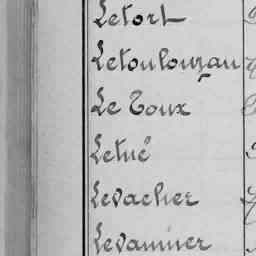 Letort
Letoulouzan
Le Toux
Letué
Levacher
Levannier